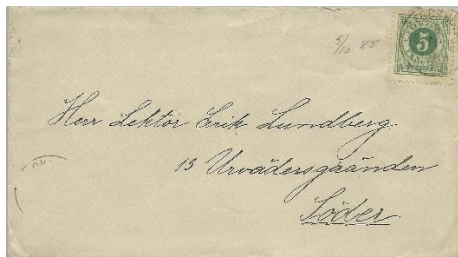 5/10 85
5
Herr Lektor Erik Lundberg
13 Urvädersgränden
Söder